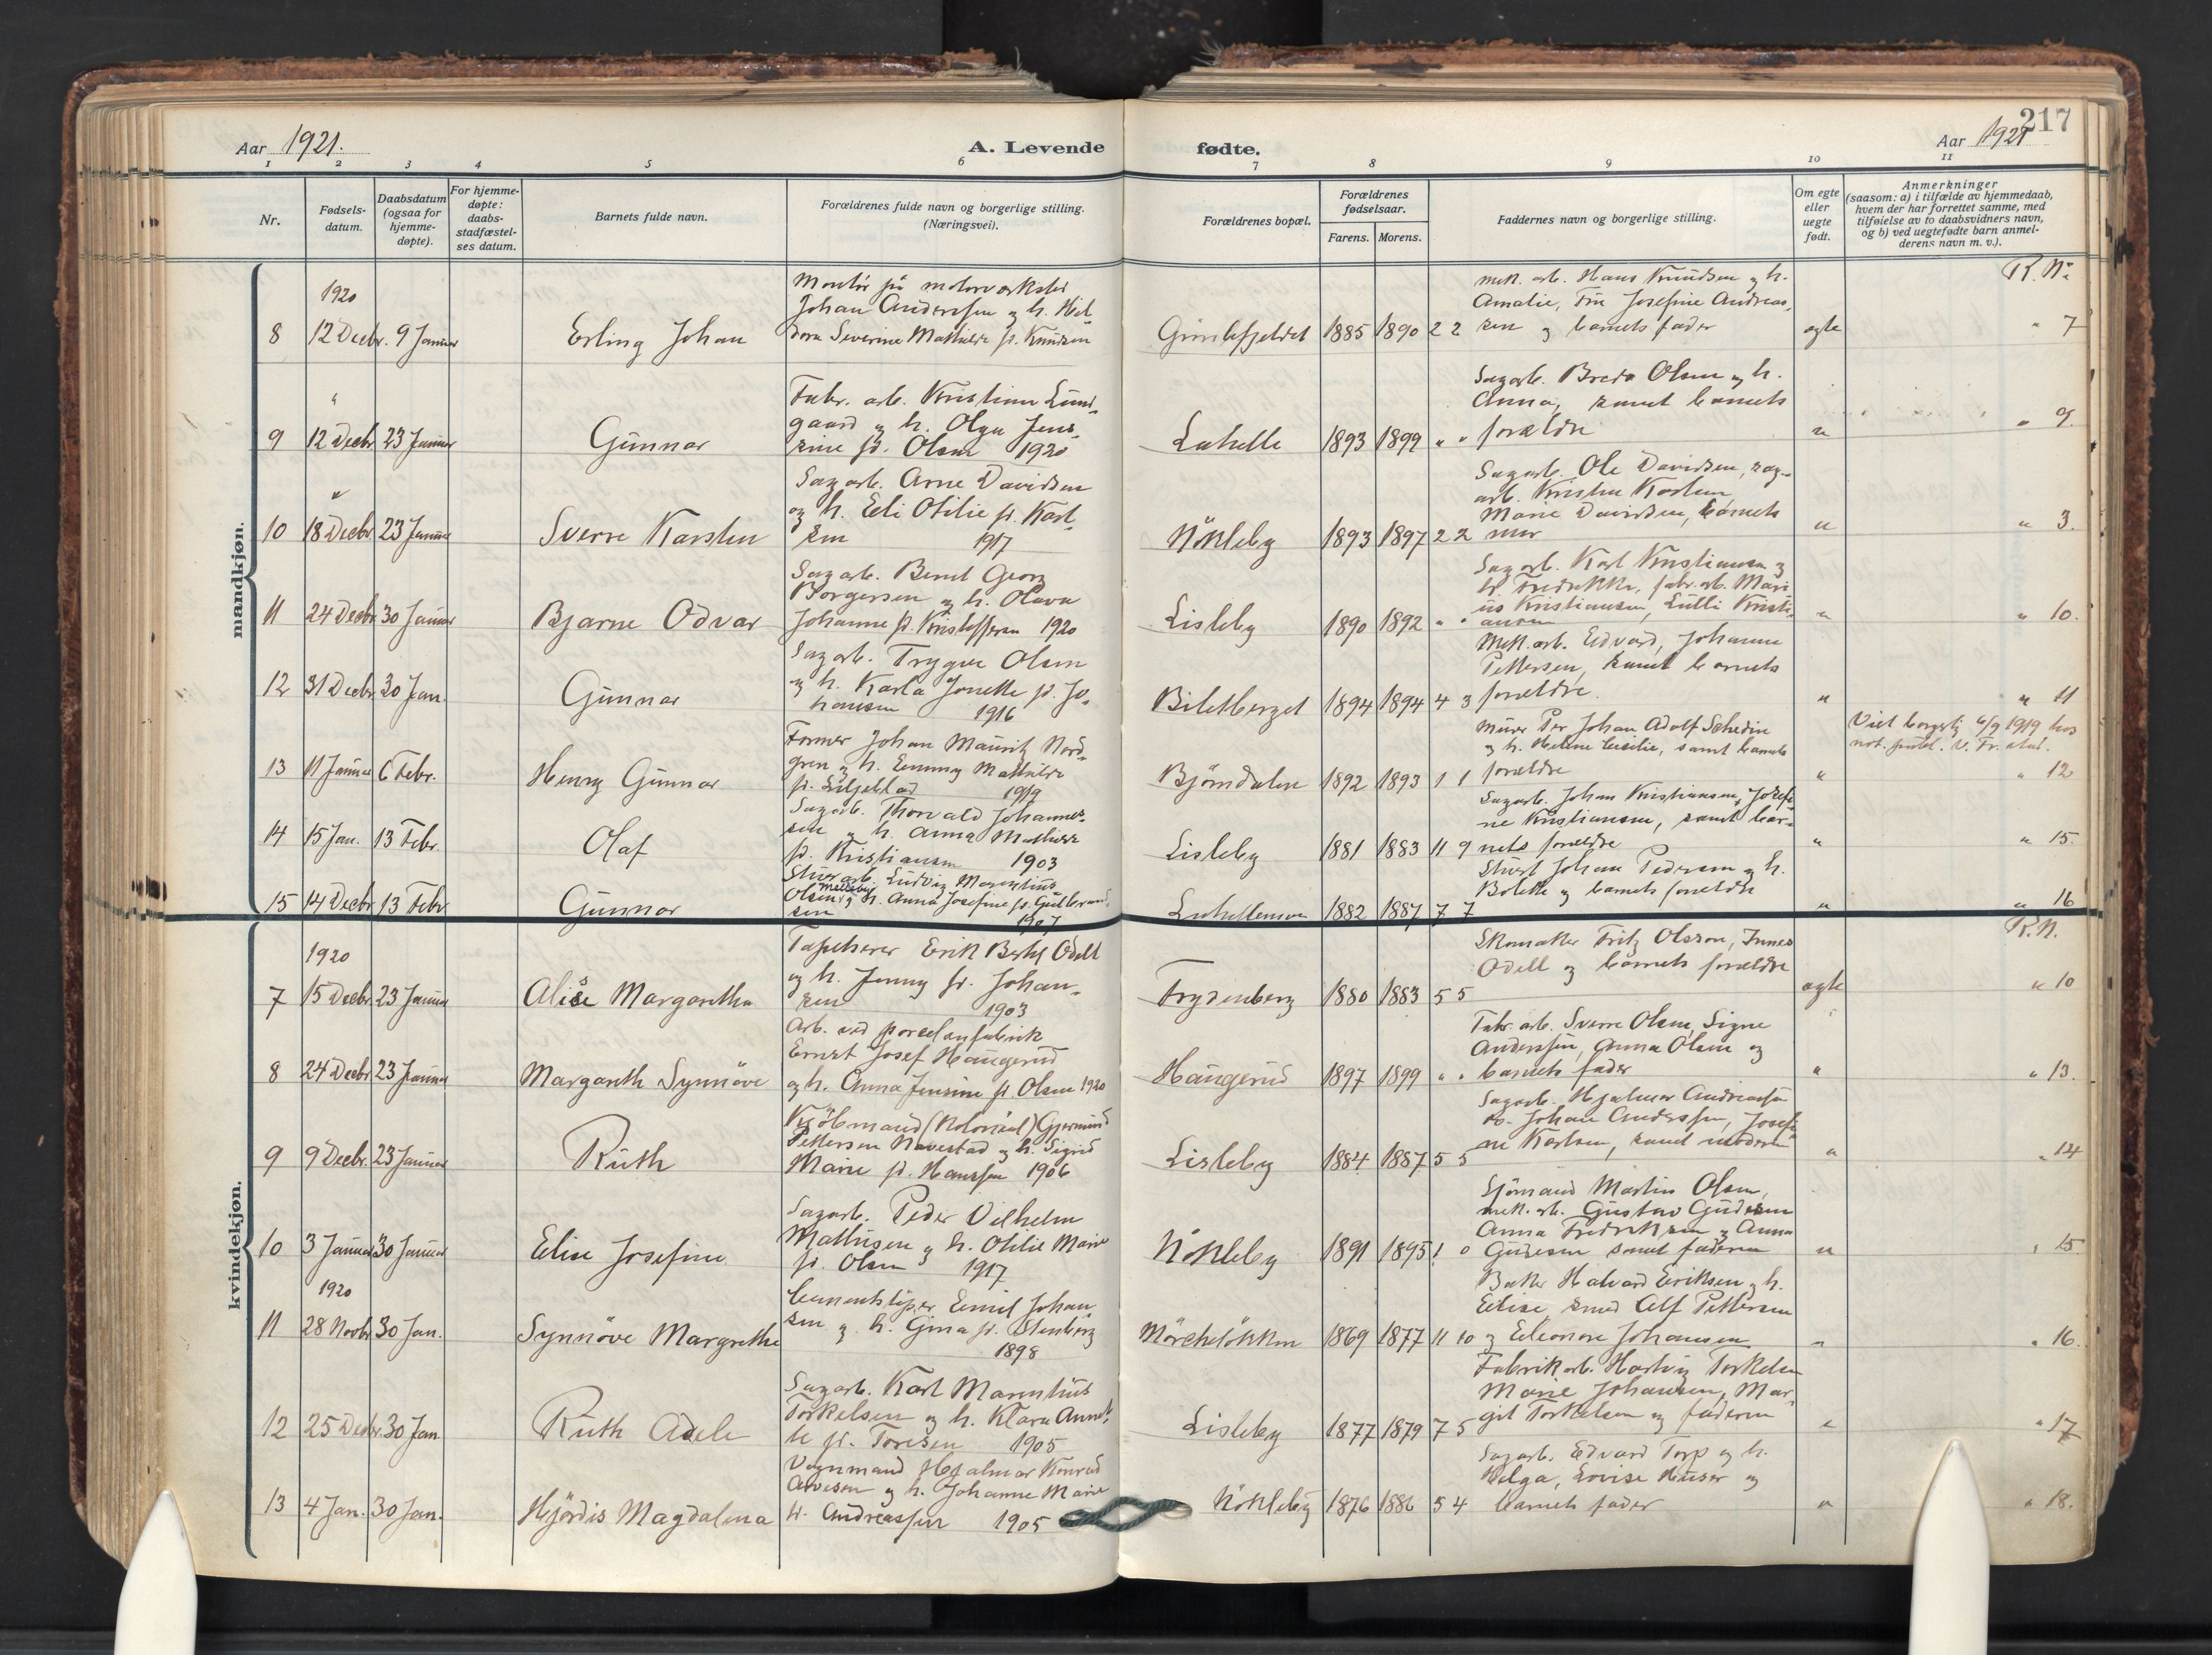 217
Aar 1921.
A. Levende
fødte.
Aar 1921
1 2 3 4 5 6 7 8 9 10 11
Nr.
Fødsels-
datum.
Daabsdatum
(ogsaa for
hjemme-
døpte).
For hjemme-
døpte:
daabs-
stadfæstel-
ses datum.
Barnets fulde navn.
Forældrenes fulde navn og borgerlige stilling.
(Næringsvei).
Forældrenes bopæl.
Forældrenes
fødselsaar.
Farens. Morens.
Faddernes navn og borgerlige stilling.
Om egte
eller
uegte
født.
Anmerkninger
(saasom: a) i tilfælde av hjemmedaab,
hvem der har forrettet samme, med
tilføielse av to daabsvidners navn,
og b) ved uegtefødte barn anmel-
derens navn m. v.).
mandkjøn.
1920
8 12 Decbr. 9 Januar
Erling Johan
Montør på motorværksted
Johan Anderssen og h. Hil-
dora Severine Mathilde f. Knudsen
1885 1890 2 2
mek. arb. Hans Knudsen og h.
Amalie, Frk Josefine Andreas-
sen og barnets fader
egte
R. Nr.
" 7
"
9 12 Decbr 23 Januar
Gunnar
Fabr. arb. Kristian Lund-
gaard og h. Olga Jens-
sine f. Olsen 1920
Lahelle
1893 1899 " "
Sagarb. Brede Olsen og h.
Anna, samt barnets
forældre
"
" 9.
"
10 18 Decbr 23 Januar
Sverre Karsten
Sagarb. Arne Davidsen
og h. Eli Otilie f. Karl-
sen 1917
Nökleby
1893 1897 2 2
Sagarb. Ole Davidsen, sag-
arb. Kristen Karlsen,
Marie Davidsen, barnets
mor
"
" 3.
11 24 Decbr 30 Januar
Bjarne Odvar
Sagarb. Bernt Georg
Borgersen og h. Olava
Johanne f. Kristoffersen 1920
Lisleby
1890 1892 " "
Sagarb. Karl Kristiansen og
h. Fredrikke, fabr. arb. Mari-
us Kristiansen, Lulli Kristi-
ansen
"
" 10.
12 31 Decbr 30 Jan.
Gunnar
Sagarb. Trygve Olsen
og h. Karla Jonette f. Jo-
hansen 1916
Biletberget
1894 1894 4 3
Mek. arb. Edvard, Johanne
Pettersen, samt barnets
forældre.
"
" 11
13 11 Januar 6 Febr.
Henry Gunnar
Former Johan Mauritz Nord-
gren og h. Emmy Mathilde
f. Liljeblad 1919
Björndalen
1892 1893 1 1
murer Per Johan Adolf Schedin
og h. Helene Cecilie, samt barnets
forældre
"
Viet borgerlig 6/9 1919 hos
not. publ. v. Fr.stad.
" 12
14 15 Jan. 13 Febr.
Olaf
Sagarb. Thorvald Johannes-
sen og h. Anna Mathilde
f. Kristiansen 1903
Lisleby
1881 1883 11 9
Sagarb. Johan Kristiansen, Josefi-
ne Kristiansen, samt bar-
nets forældre
"
" 15.
15 14 Decbr 13 Febr
Gunnar
Ludvig Marentius
Olsen Melleby og h. Anna Josefine f. Gulbrand-
sen 1907
1882 1887 7 7
Johan Pedersen og h.
Bolette og barnets forældre
"
" 16
kvindekjøn.
1920
7 15 Decbr. 23 Januar
Alise Margaretha
Tapetserer Erik Bertil Odell
og h. Jenny f. Johan-
sen 1903
Frydenberg
1880 1883 5 5
Skomaker Fritz Olsson, Innes
Odell og barnets forældre
egte
R. N.
" 10
8 24 Decbr 23 Januar
Margareth Synnöve
Arb. ved porcelænfabrik
Ernst Josef Haugerud
og h. Anna Jensine f. Olsen 1920
Haugerud
1897 1899 " "
Fabr. arb. Sverre Olsen, Signe
Anderssen, Anna Olsen og
barnets fader
"
" 13.
9 9 Decbr. 23 Januar
Ruth
Kjöbmand (Kolonial) Gjermund
Pettersen Navestad og h. Sigrid
Marie f. Hanssen 1906
Lisleby
1884 1887 5 5
Sagarb. Hjalmar Andreassen
Johan Anderssen, Josefi-
ne Karlsen, samt moderen
"
" 14
10 3 Januar 30 Januar
Elise Josefine
Sagarb. Peder Vilhelm
Mathisen og h. Otilie Marie
f. Olsen 1917
Nökleby
1891 1895 1 0
Sjömand Martin Olsen,
mek. arb. Gustav Gudesen
Anna Fredriksen og Anna
Gudesen samt faderen
"
" 15.
1920
11 28 Novbr 30 Jan.
Synnöve Margrethe
Cementstöper Emil Johan
sen og h. Gina f. Stenberg
1898
Mörchelökken
1869 1877 11 10
Baker Halvard Eriksen og h.
Elise, smed Alf Pettersen
og Eleonore Johansen
"
" 16.
12 25 Decbr. 30 Jan
Ruth Adele
Sagarb. Karl Marentius
Torkelsen og h. Klara Annet-
te f. Toresen 1905
Lisleby
1877 1879 7 5
Fabrikarb. Hartvig Torkelsen
Marie Johansen, Mar-
git Torkelsen og faderen
"
" 17
13 4 Jan. 30 Jan.
Hjördis Magdalena
Vognmand Hjalmar Konrad
Arvesen og h. Johanne Marie
f. Andreassen 1905
Nökleby
1876 1886 5 4
Sagarb. Edvard Torp og h.
Helga, Lovise Huser og
barnets fader
"
" 18.